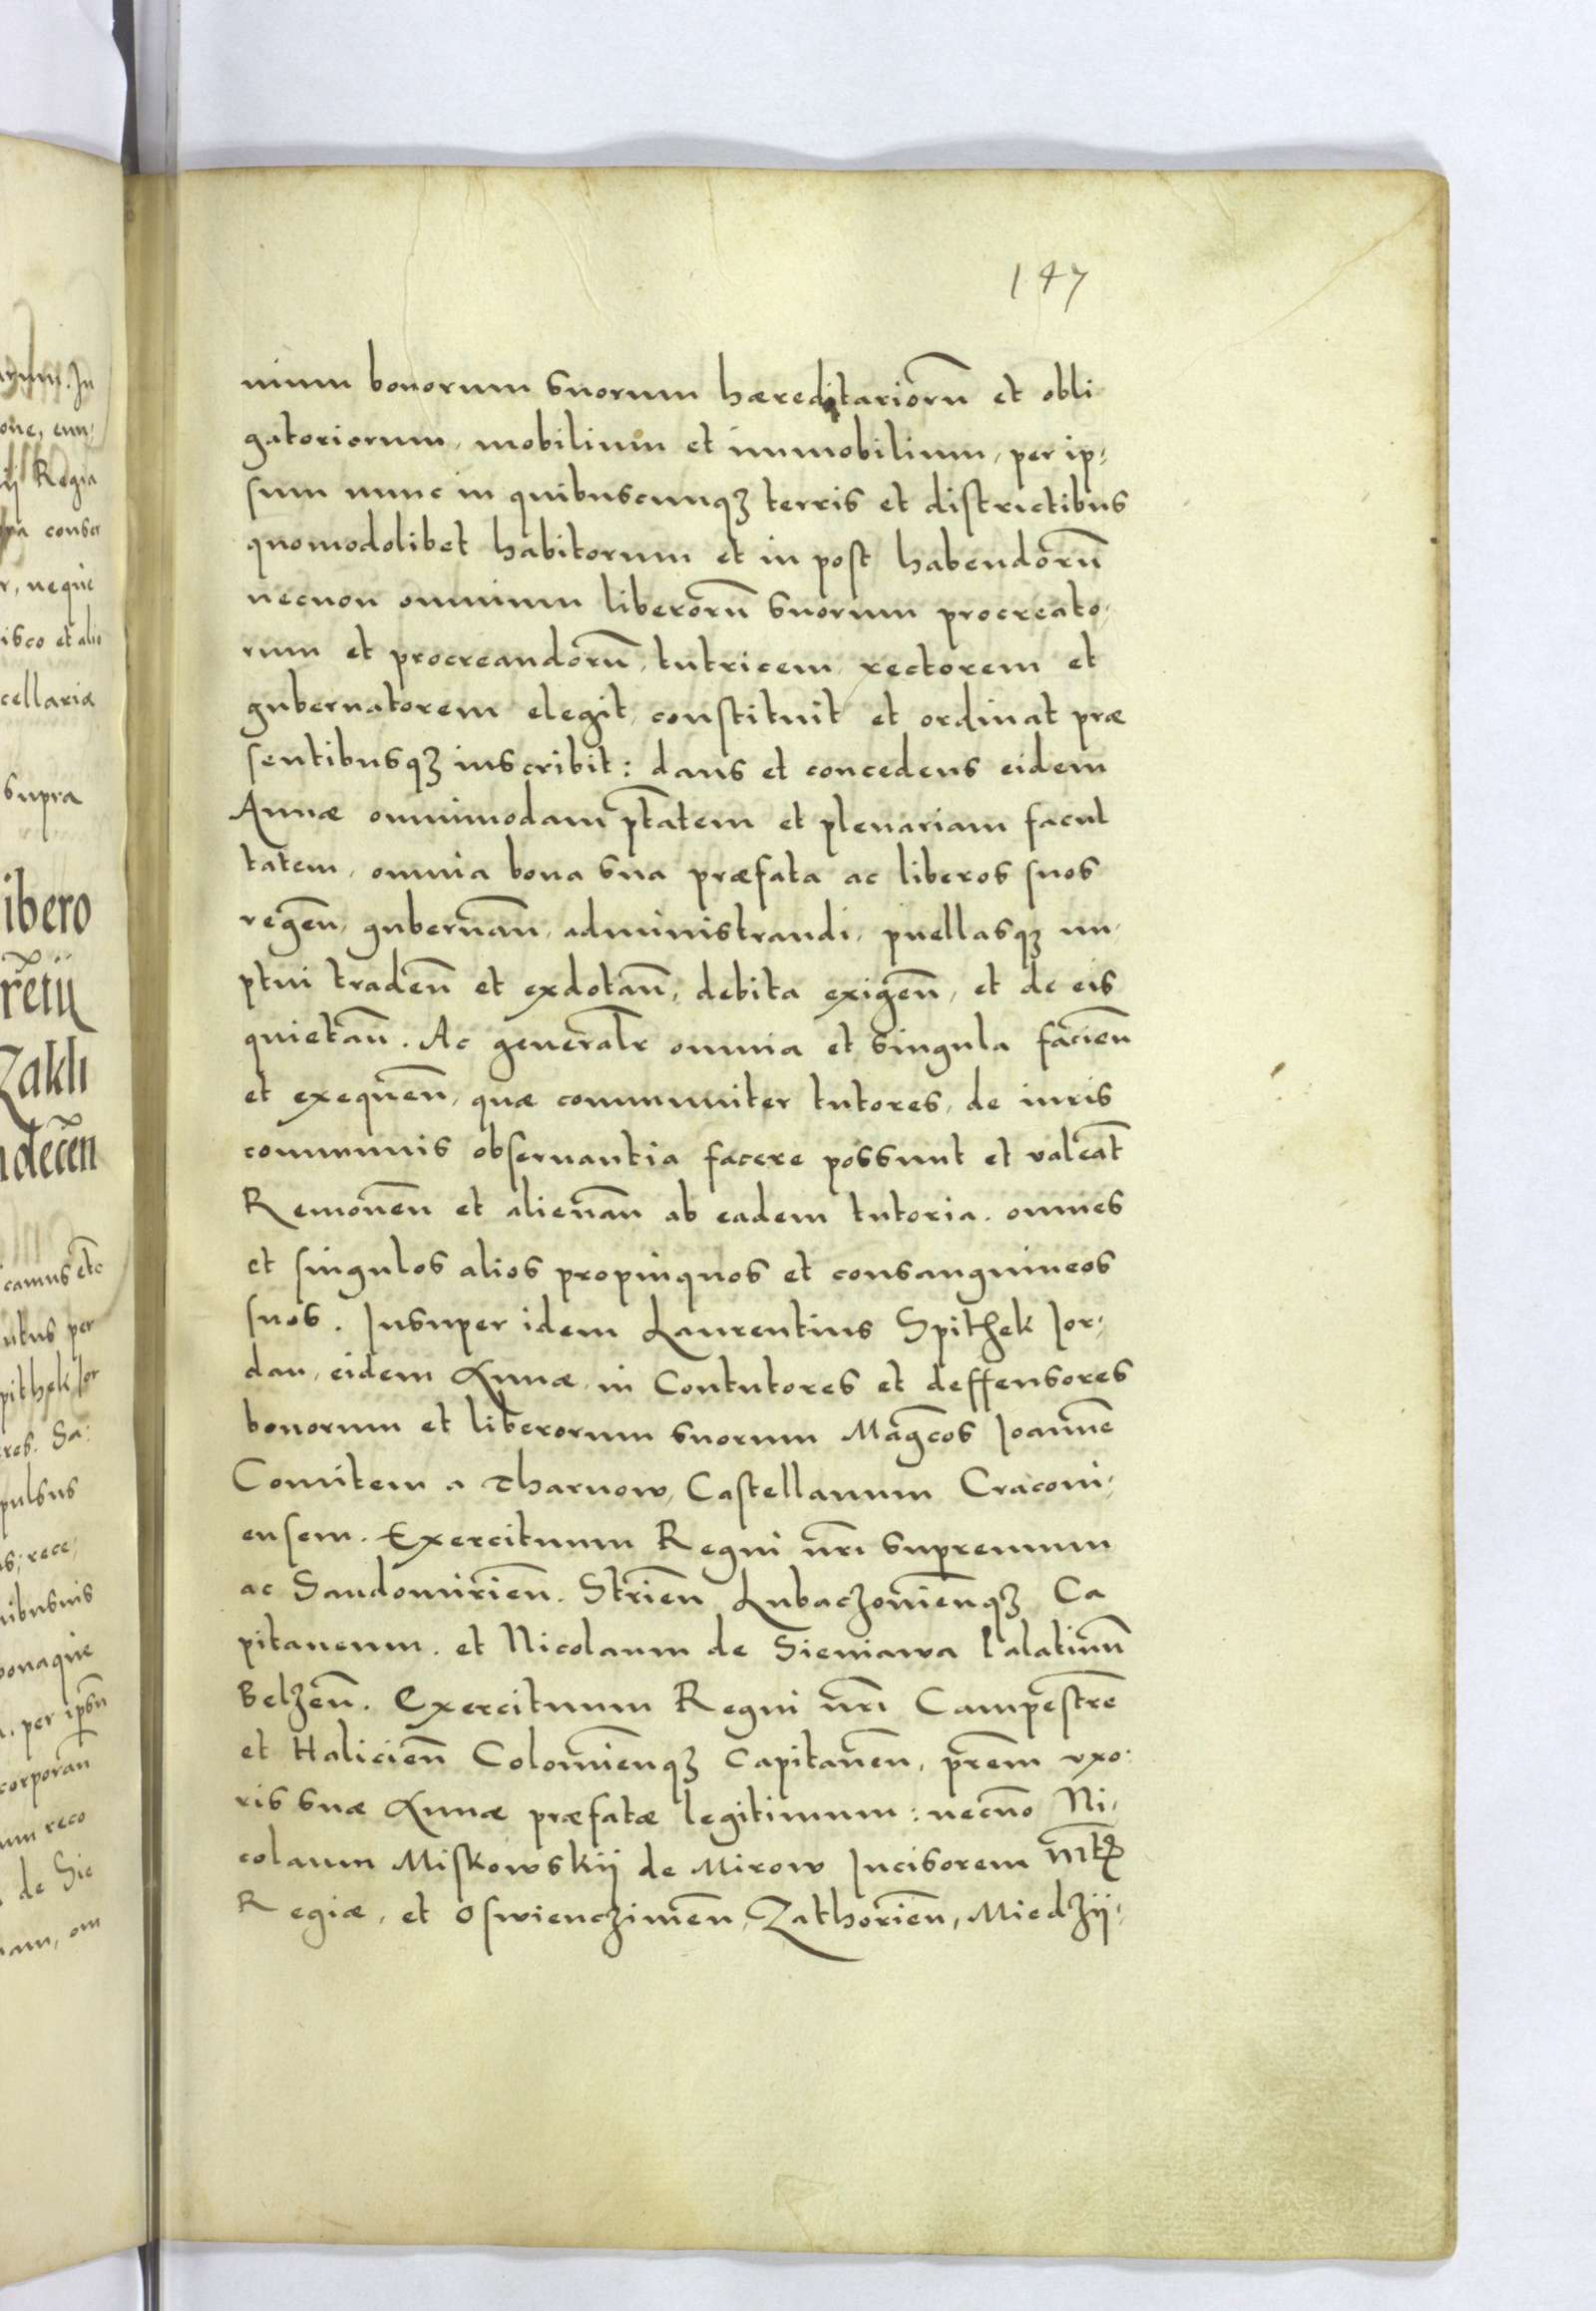 147
nium bonorum suorum hæreditariorũ et obli
gatoriorum, mobilium et immobilium, per ip:
sum nunc in quibuscunqꝫ terris et districtibus
quomodolibet habitorum et in post habendorũ
necnon omnium liberorũ suorum procreato,
rum et procreandorũ, tutricem rectorem et
gubernatorem elegit, constituit et ordinat præ
sentibusqꝫ inscribit: dans et concedens eidem
Annæ omnimodam ptãtem et plenariam facul
tatem, omnia bona sua præfata ac liberos suos
regeñ, gubernañ, administrandi, puellasqꝫ nu,
ptui tradeñ et exdotañ, debita exigeñ, et de eis
quietañ. Ac generalr̃ omnia et singula facieñ
et exequeñ, quæ communiter tutores, de iuris
communis obseruantia facere possunt et valeãt
Remoueñ et alienañ ab eadem tutoria. omnes
et singulos alios propinquos et consanguineos
suos. Insuper idem Laurentius Spithek Ior:
dan, eidem Annæ in Contutores et deffensores
bonorum et liberorum suorum Mag̃cos Ioannẽ
Comitem a Tharnow, Castellanum Cracoui,
ensem. Exercituum Regni nr̃i supremum
ac Sandomirieñ. Strieñ Lubaczouieñqꝫ Ca
pitaneum. et Nicolaum de Sieniawa Palatinũ
Belzeñ. Exercituum Regni nr̃i Campestrẽ
et Halicieñ Colomieñqꝫ Capitaneũ, pr̃em vxo:
ris suæ Annæ præfatæ legitimum: necno͂ Ni,
colaum Miskowskij de Mirow Incisorem Mt̃ꝭ
Regiæ, et Oswiencziméñ, Zathorieñ, Miedzij: